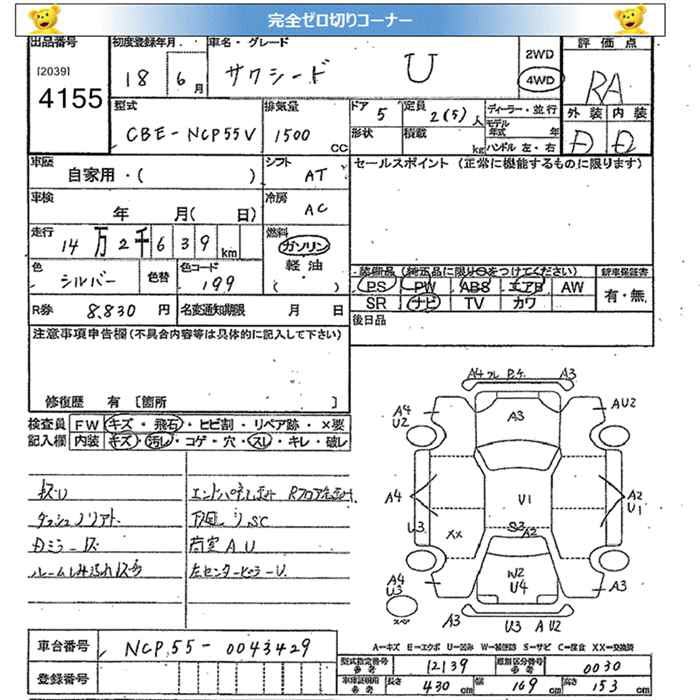 完全ゼロ切りコーナー
出品番号 初度登録年月 車名・グレード 2WD 評価点
[2039] 18 6月 サクシード U 4WD RA
4155
型式 排気量 ドア 5 定員 2(5)人 ディーラー・並行 外装 内装
CBE-NCP55V 1500 CC 形状 積載 kg モデル年式 年 D D
ハンドル 左・右
車歴 シフト セールスポイント (正常に機能するものに限ります)
自家用・( ) AT
車検 冷房
年 月( 日) AC
走行 燃料
14万2千639km ガソリン
軽油
( )
色 シルバー 色替 色コード 199 装備品 (純正品に限り○をつけてください) 新車保証書
PS PW ABS エアB AW 有・無
R券 8,830円 名変通知期限 月 日 SR ナビ TV カワ
注意事項申告欄 (不具合内容等は具体的に記入して下さい) 後日品
修復歴 有 [箇所 ]
検査員 FW キズ・飛石・ヒビ割・リペア跡・×要
記入欄 内装 キズ・汚レ・コゲ・穴・スレ・キレ・破レ
A4 P.ケ. A3
A4 U2 A3 AU2
A4 U1 A2 U1
U3 XX S3 A2
W2 U4
A4 U3 A3
スペア A3 U3 A U2
下回りSC
荷室AU
左センターピラーU
A=キズ E=エクボ U=凹み W=補修跡 S=サビ C=腐食 XX=交換済
車台番号 NCP55-0043429
型式指定番号 参考 12139 類別区分番号 参考 0030
登録番号 車庫証明用 参考 長さ 430cm 幅 169cm 高さ 153cm